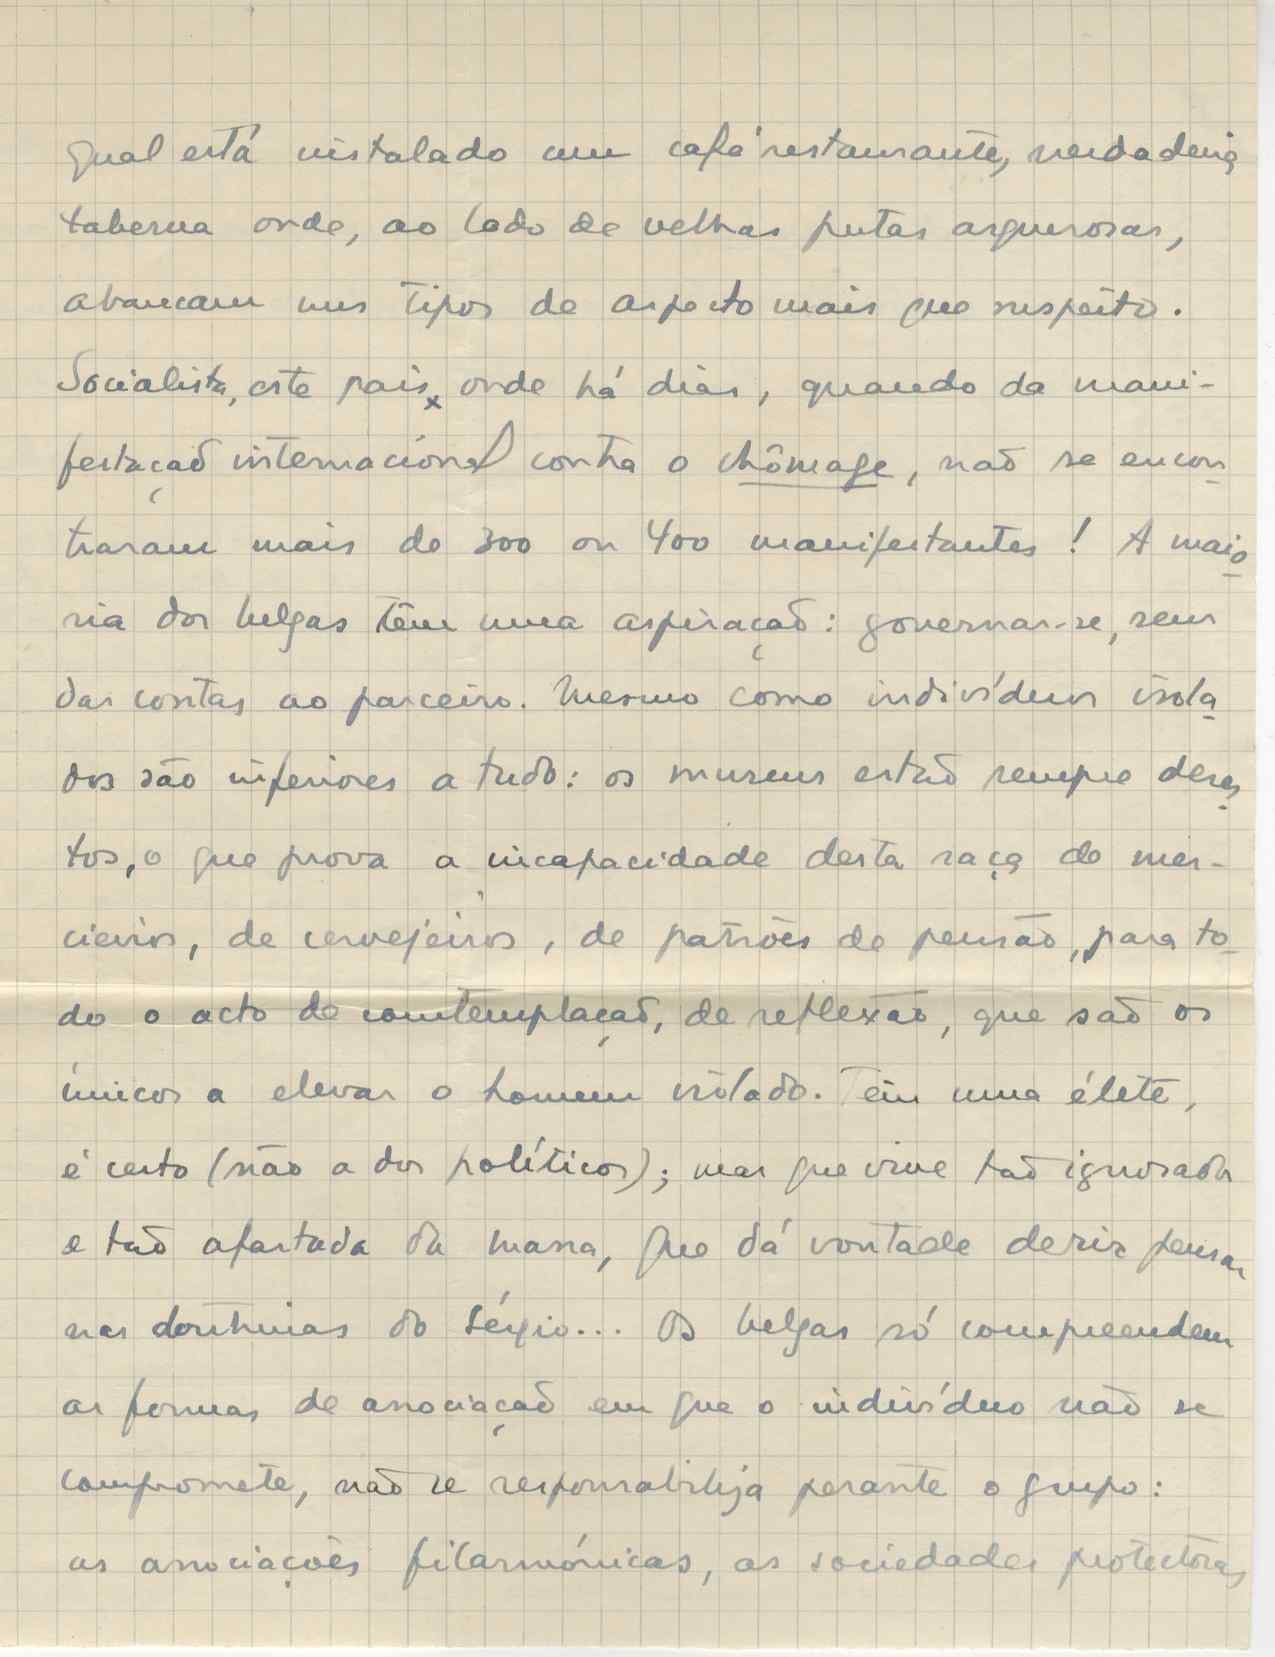 qual está instalado um café restaurante, verdadeira
taberna onde, ao lado de velhas putas asquerosas,
abancam uns tipos de aspecto mais que suspeito.
Socialista, este pais, onde há dias, quando da mani-
festação internacional contra o chômage, não se encon-
traram mais de 300 ou 400 manifestantes! A maio-
ria dos belgas têm uma aspiração: governar-se, sem
dar contas ao parceiro. Mesmo como indivíduos isola-
dos são inferiores a tudo: os museus estão sempre deser-
tos, o que prova a incapacidade desta raça de mer-
cieiros, de cervejeiros, de patrões de pensão, para to-
do o acto de comtemplação, de reflexão, que são os
únicos a elevar o homem isolado. Têm uma élite,
é certo (não a dos políticos); mas que vive tão ignorada
e tão afastada da massa, que dá vontade de rir pensar
nas doutrinas do Sérgio... Os belgas só compreendem
as formas de associação em que o indivíduo não se
compromete, não se responsabiliza perante o grupo:
as associações filarmónicas, as sociedades protectoras